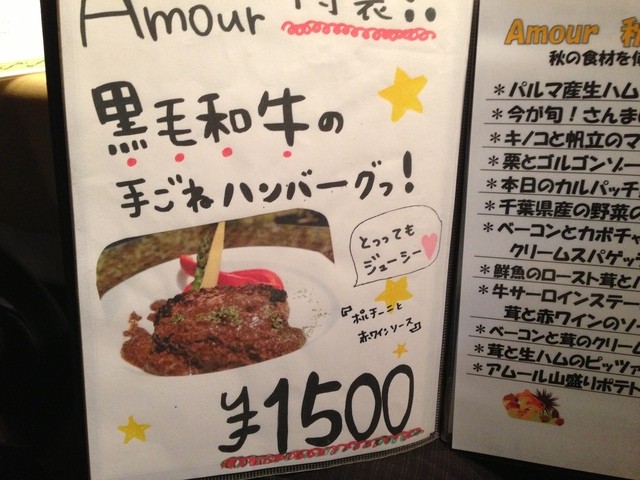 Amour 特製!!
黒毛和牛の
手ごねハンバーグっ!
とっっても
ジューシー
『ポルチーニと
赤ワインソース』
¥1500
Amour
秋の食材を
*パルマ産生ハム
*今が旬!さんまの
*キノコと帆立のマ
*栗とゴルゴンゾー
*本日のカルパッチ
*千葉県産の野菜の
*ベーコンとカボチャ
クリームスパゲッテ
*鮮魚のロースト茸と
*牛サーロインステー
茸と赤ワインのソ
*ベーコンと茸のクリーム
*茸と生ハムのピッツァ
*アムール山盛りポテト